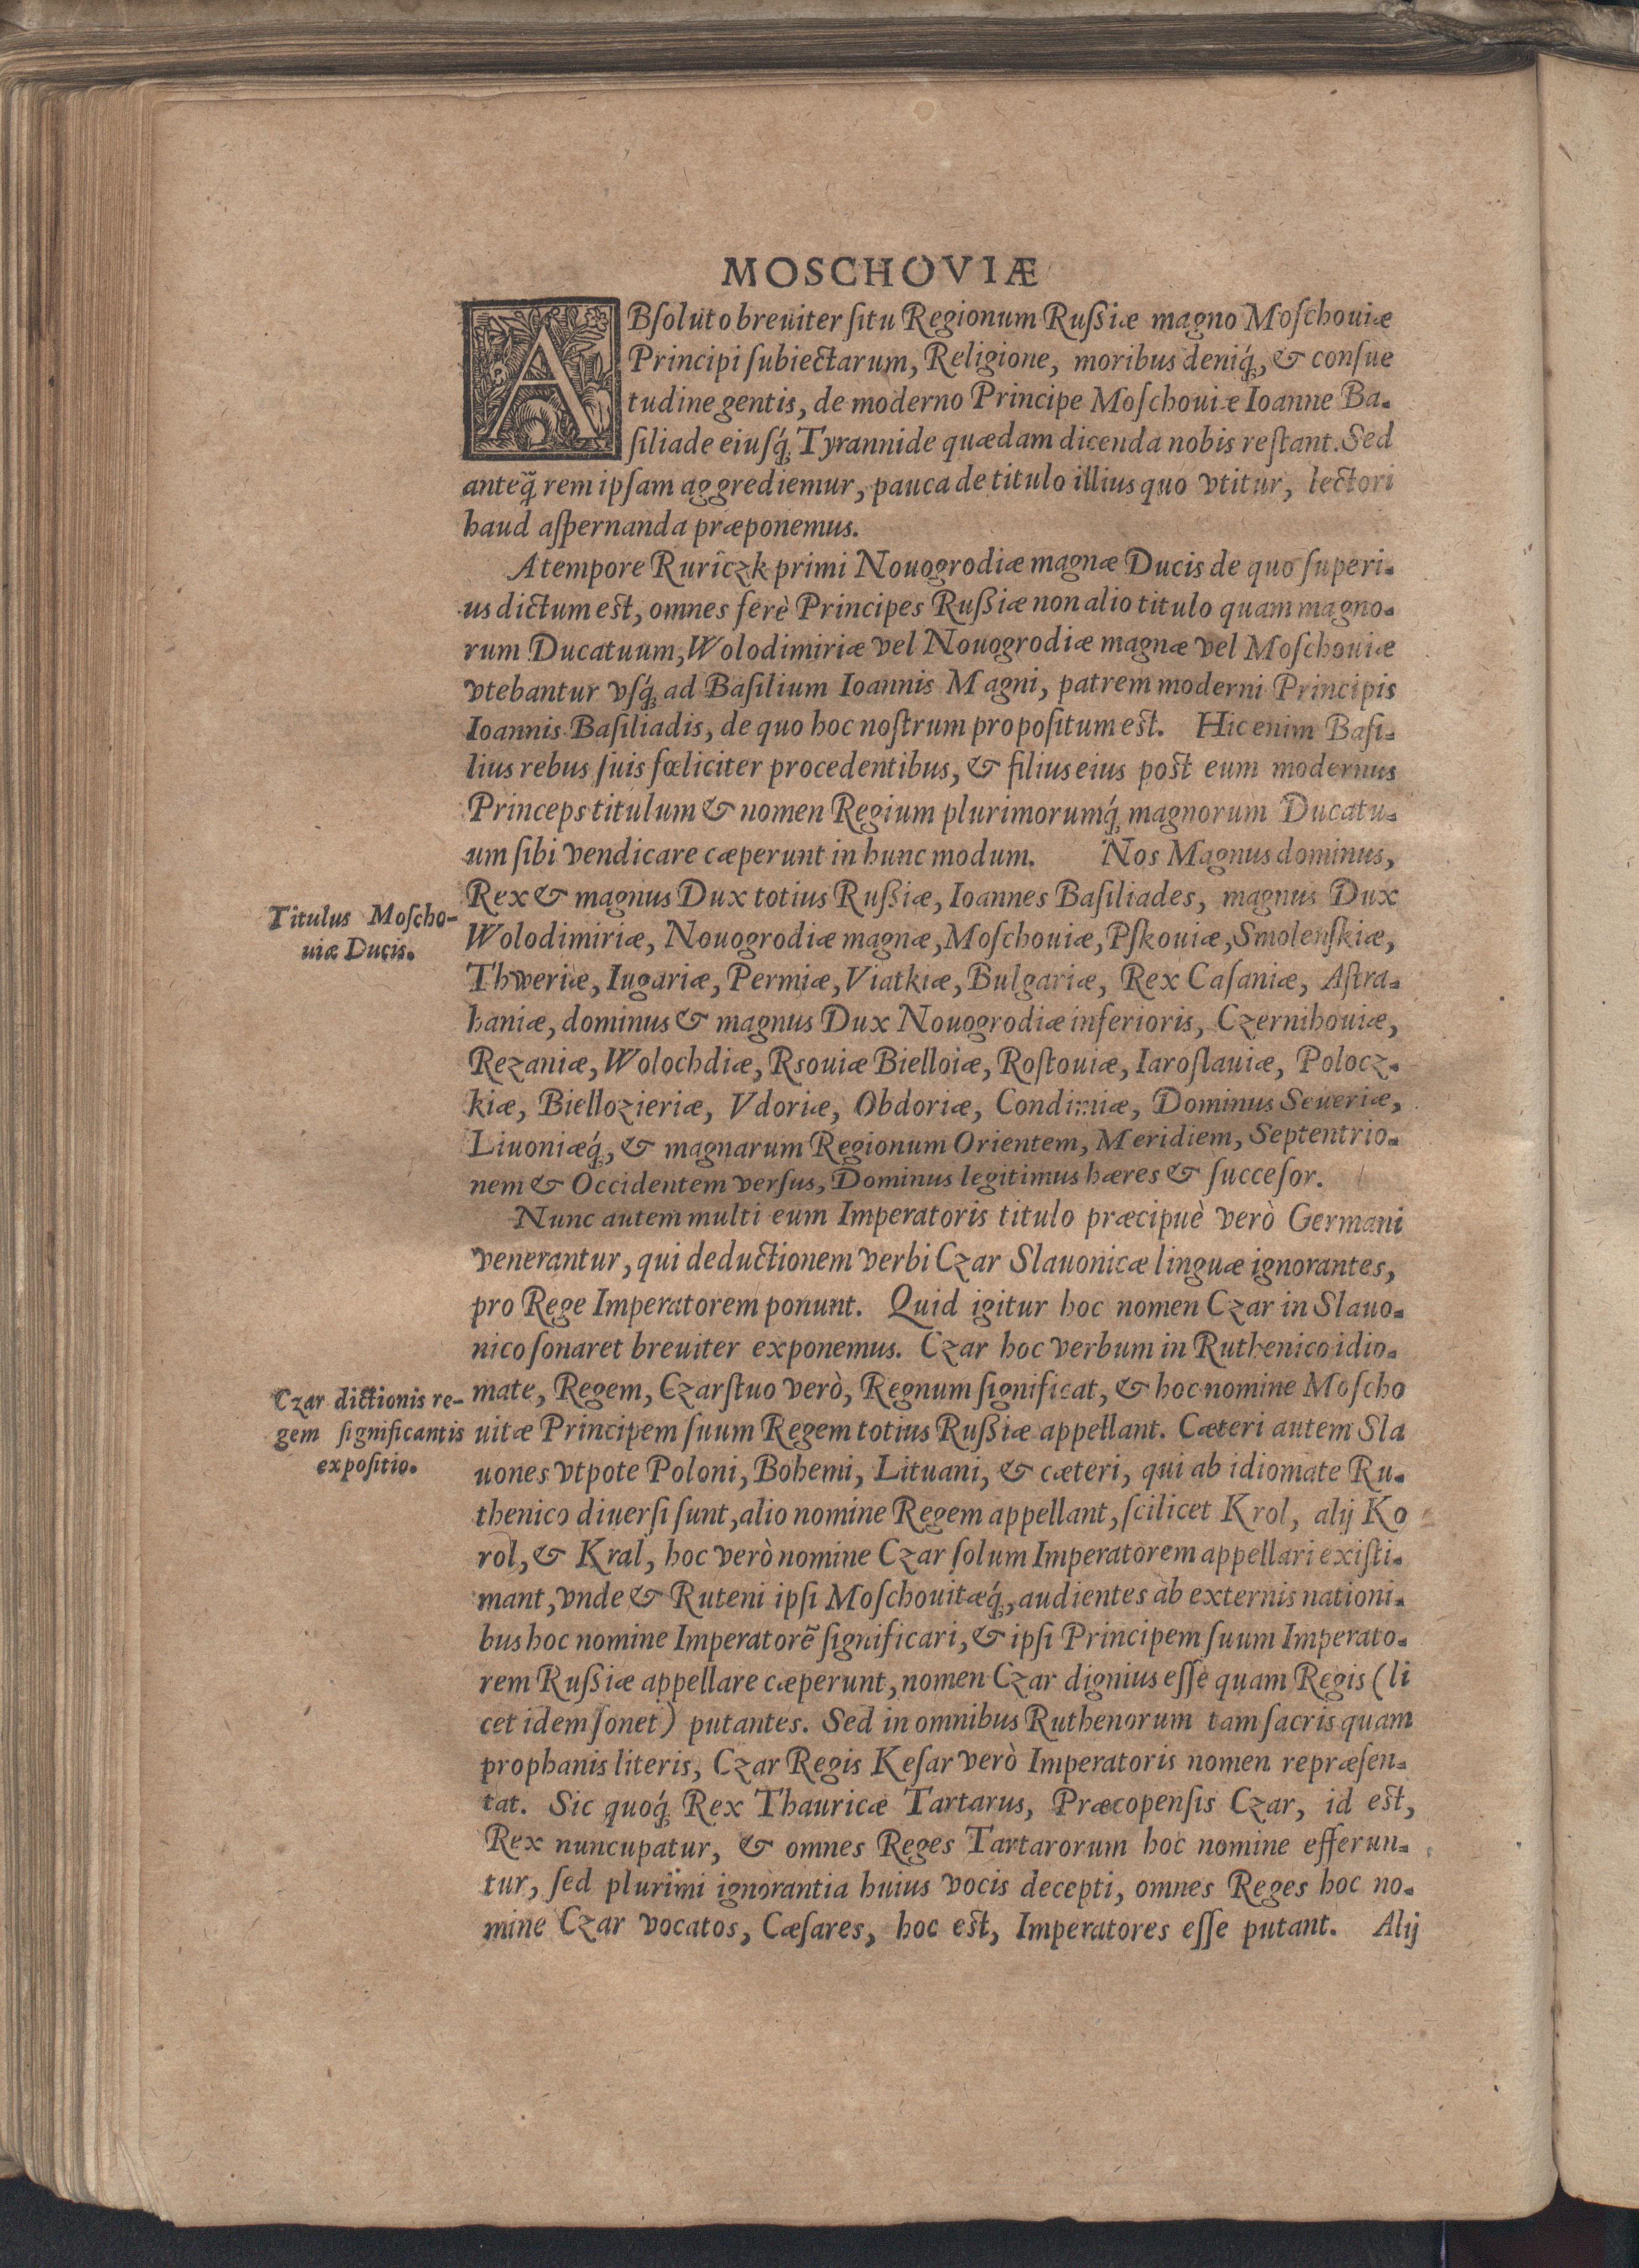 MOSCHOVIÆ
ABſoluto breuiter ſitu Regionum Rußiæ magno Moſchouiæ
Principi ſubiectarum, Religione, moribus deniq́;, & conſue
tudine gentis, de moderno Principe Moſchouiæ Ioanne Ba-
ſiliade eiuſq́; Tyrannide quædam dicenda nobis reſtant. Sed
anteq̃ rem ipſam aggrediemur, pauca de titulo illius quo vtitur, lectori
haud aſpernanda præponemus.
A tempore Ruriczk primi Nouogrodiæ magnæ Ducis de quo ſuperi-
us dictum est, omnes ferè Principes Rußiæ non alio titulo quam magno-
rum Ducatuum, Wolodimiriæ vel Nouogrodiæ magnæ vel Moſchouiæ
vtebantur vſq́; ad Baſilium Ioannis Magni, patrem moderni Principis
Ioannis Baſiliadis, de quo hoc noſtrum propoſitum est. Hic enim Baſi-
lius rebus ſuis fœliciter procedentibus, & filius eius post eum modernus
Princeps titulum & nomen Regium plurimorumq́; magnorum Ducatu-
um ſibi vendicare cæperunt in hunc modum. Nos Magnus dominus,
Rex & magnus Dux totius Rußiæ, Ioannes Baſiliades, magnus Dux
Titulus Moſcho-
uiæ Ducis.
Wolodimiriæ, Nouogrodiæ magnæ, Moſchouiæ, Pſkouiæ, Smolenſkiæ,
Thweriæ, Iugariæ, Permiæ, Viatkiæ, Bulgariæ, Rex Caſaniæ, Aſtra-
haniæ, dominus & magnus Dux Nouogrodiæ inferioris, Czernihouiæ,
Rezaniæ, Wolochdiæ, Rsouiæ Bielloiæ, Roſtouiæ, Iaroſlauiæ, Polocz-
kiæ, Biellozieriæ, Vdoriæ, Obdoriæ, Condiniæ, Dominus Seueriæ,
Liuoniæq́;, & magnarum Regionum Orientem, Meridiem, Septentrio-
nem & Occidentem verſus, Dominus legitimus hæres & ſucceſor.
Nunc autem multi eum Imperatoris titulo præcipuè verò Germani
venerantur, qui deductionem verbi Czar Slauonicæ linguæ ignorantes,
pro Rege Imperatorem ponunt. Quid igitur hoc nomen Czar in Slauo-
nico ſonaret breuiter exponemus. Czar hoc verbum in Ruthenico idio-
Czar dictionis re-
gem ſignificantis
expoſitio.
mate, Regem, Czarſtuo verò, Regnum ſignificat, & hoc nomine Moſcho
uitæ Principem ſuum Regem totius Rußiæ appellant. Cæteri autem Sla
uones vtpote Poloni, Bohemi, Lituani, & cæteri, qui ab idiomate Ru-
thenico diuerſi ſunt, alio nomine Regem appellant, ſcilicet Krol, alij Ko
rol, & Kral, hoc verò nomine Czar ſolum Imperatorem appellari exiſti-
mant, vnde & Ruteni ipſi Moſchouitæq́;, audientes ab externis nationi-
bus hoc nomine Imperatorẽ ſignificari, & ipſi Principem ſuum Imperato-
rem Rußiæ appellare cæperunt, nomen Czar dignius eſſe quam Regis (li
cet idem ſonet) putantes. Sed in omnibus Ruthenorum tam ſacris quam
prophanis literis, Czar Regis Keſar verò Imperatoris nomen repræſen-
tat. Sic quoq́; Rex Thauricæ Tartarus, Præcopenſis Czar, id est,
Rex nuncupatur, & omnes Reges Tartarorum hoc nomine efferun-
tur, ſed plurimi ignorantia huius vocis decepti, omnes Reges hoc no-
mine Czar vocatos, Cæſares, hoc est, Imperatores eſſe putant. Alij